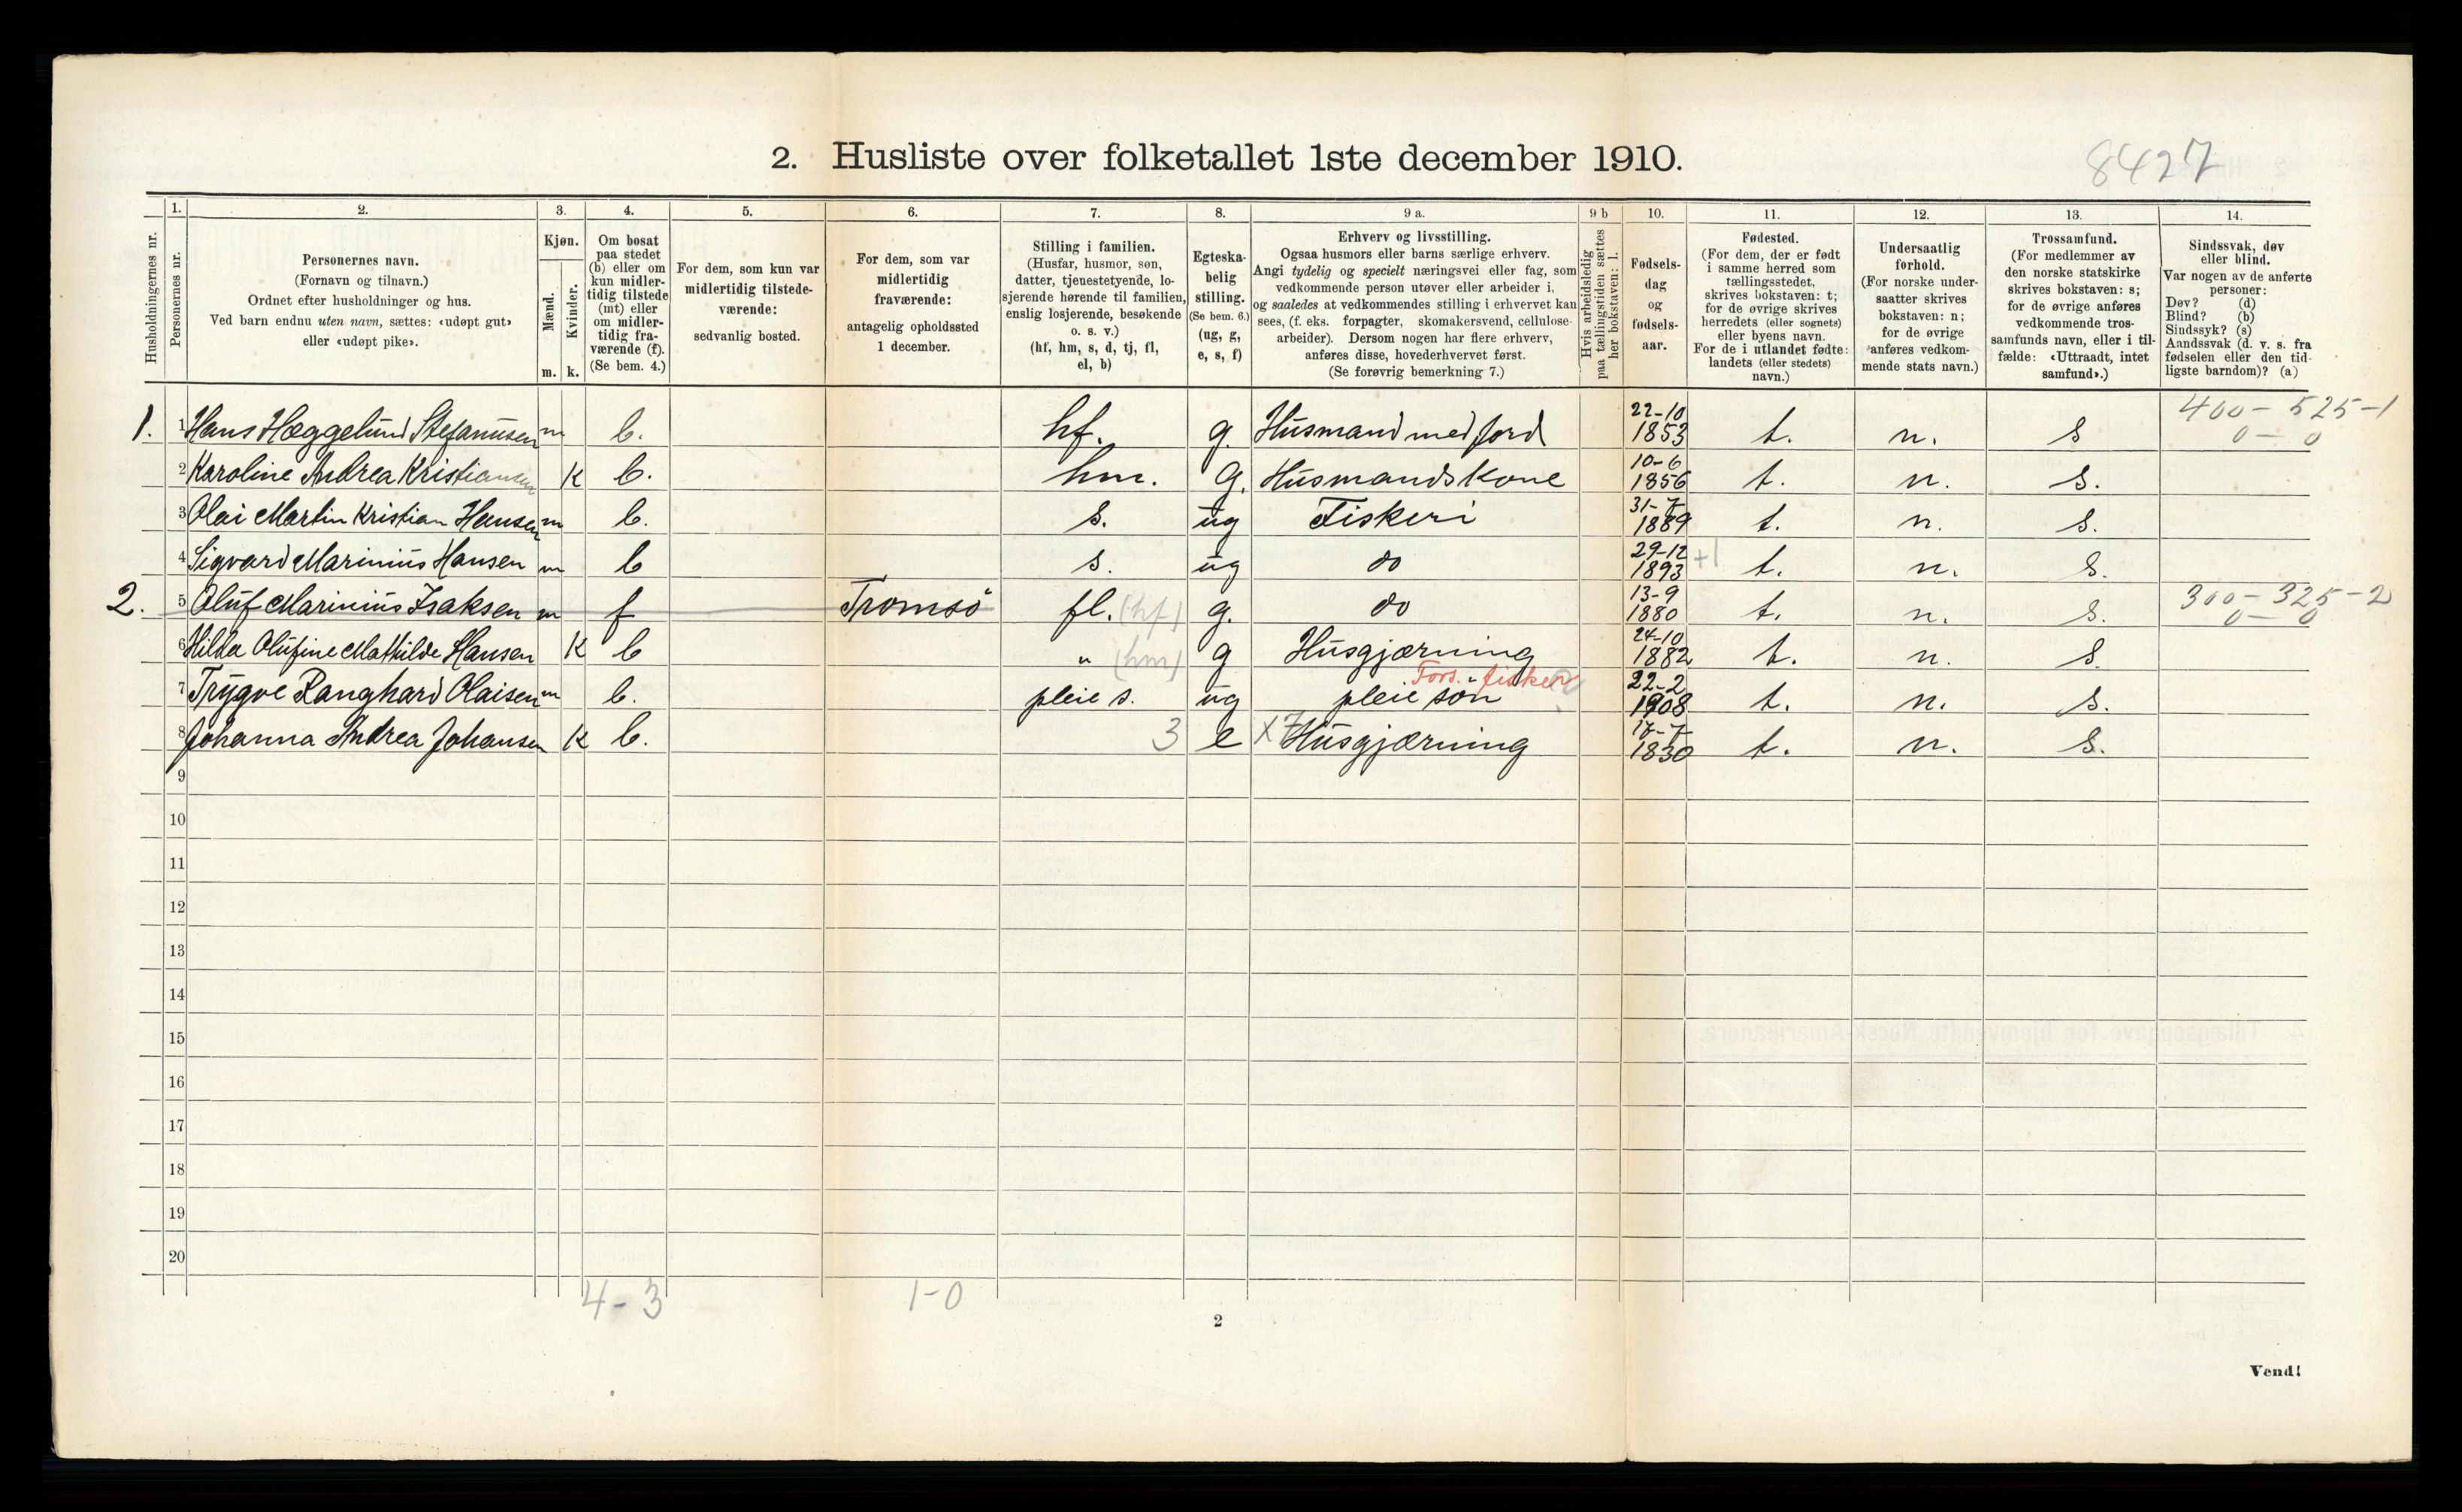 2. Husliste over folketallet 1ste december 1910.
8427
Husholdningernes nr.
1.
Personernes nr.
2.
Personernes navn.
(Fornavn og tilnavn.)
Ordnet efter husholdninger og hus.
Ved barn endnu uten navn, sættes: «udøpt gut»
eller «udøpt pike».
3.
Kjøn.
Mænd.
Kvinder.
m. k.
4.
Om bosat
paa stedet
(b) eller om
kun midler-
tidig tilstede
(mt) eller
om midler-
tidig fra-
værende (f).
(Se bem. 4.)
5.
For dem, som kun var
midlertidig tilstede-
værende:
sedvanlig bosted.
6.
For dem, som var
midlertidig
fraværende:
antagelig opholdssted
1 december.
7.
Stilling i familien.
(Husfar, husmor, søn,
datter, tjenestetyende, lo-
sjerende hørende til familien,
enslig losjerende, besøkende
o. s. v.)
(hf, hm, s, d, tj, fl,
el, b)
8.
Egteska-
belig
stilling.
(Se bem. 6.)
(ug, g,
e, s, f)
9 a.
Erhverv og livsstilling.
Ogsaa husmors eller barns særlige erhverv.
Angi tydelig og specielt næringsvei eller fag, som
vedkommende person utøver eller arbeider i,
og saaledes at vedkommendes stilling i erhvervet kan
sees, (f. eks. forpagter, skomakersvend, cellulose-
arbeider). Dersom nogen har flere erhverv,
anføres disse, hovederhvervet først.
(Se forøvrig bemerkning 7.)
9 b
Hvis arbeidsledig
paa tællingstiden sættes
her bokstaven: l.
10.
Fødsels-
dag
og
fødsels-
aar.
11.
Fødested.
(For dem, der er født
i samme herred som
tællingsstedet,
skrives bokstaven: t;
for de øvrige skrives
herredets (eller sognets)
eller byens navn.
For de i utlandet fødte:
landets (eller stedets)
navn.)
12.
Undersaatlig
forhold.
(For norske under-
saatter skrives
bokstaven: n;
for de øvrige
anføres vedkom-
mende stats navn.)
13.
Trossamfund.
(For medlemmer av
den norske statskirke
skrives bokstaven: s;
for de øvrige anføres
vedkommende tros-
samfunds navn, eller i til-
fælde: «Uttraadt, intet
samfund».)
14.
Sindssvak, døv
eller blind.
Var nogen av de anførte
personer:
Døv? (d)
Blind? (b)
Sindssyk? (s)
Aandssvak (d. v. s. fra
fødselen eller den tid-
ligste barndom)? (a)
1. 1 Hans Hæggelund Stefanusen m b. hf. g. Husmand med jord 22-10 1853 t. n. s 400-525-1 0-0
2 Karoline Andrea Kristiansen K b. hm. g. Husmandskone 10-6 1856 t. n. s.
3 Olai Martin Kristian Hansen m b. s. ug Fiskeri 31-7 1889 t. n. s.
4 Sigvard Marinius Hansen m b s. ug do 29-12 1893 +1 t. n. s.
2. 5 Oluf Marinius Isaksen m f Tromsö fl. (hf) g. do 13-9 1880 t. n. s. 300-325-2 0-0
6 Hilda Olufine Mathilde Hansen K b " (hm) g Husgjærning 24-10 1882 t. n. s.
Fors. fisker
7 Trygve Ranghard Olaisen m b. pleie s. ug pleie sön 22-2 1908 t. n. s.
8 Johanna Andrea Johansen K b. 3 e X7 Husgjærning 17-7 1830 t. n. s.
9
10
11
12
13
14
15
16
17
18
19
20
4-3 1-0
2
Vend!